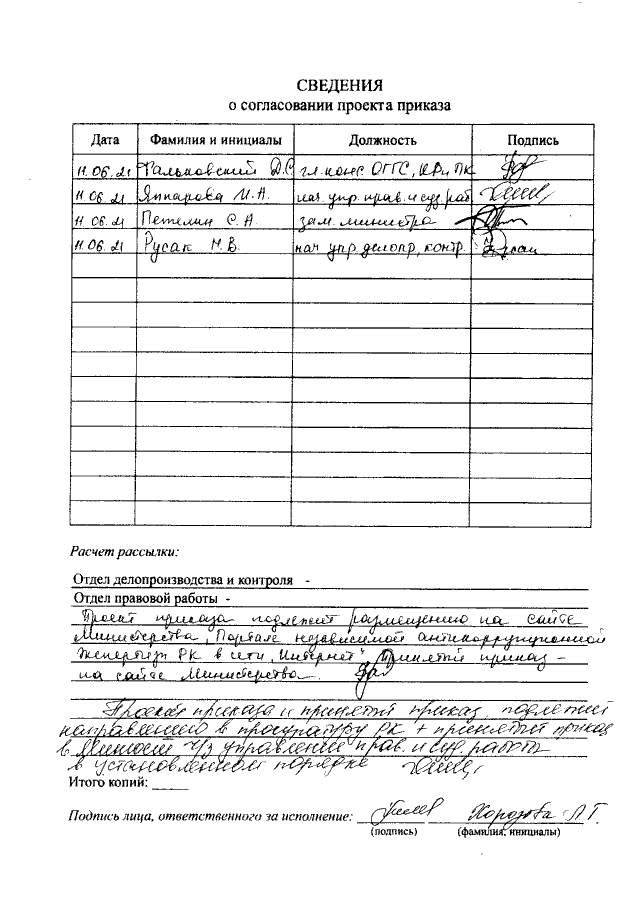 СВЕДЕНИЯ
о согласовании проекта приказа
Дата Фамилия и инициалы Должность Подпись
11.06.21 Фальковский Д.С. гл. конс ОГГС, КР и ПК
11.06.21 Яппарова И.А. нач. упр. прав. и суд. раб.
11.06.21 Петелин С.А. зам. министра
11.06.21 Русак М.В. нач упр. делопр., контр.
Расчет рассылки:
Отдел делопроизводства и контроля -
Отдел правовой работы -
Проект приказа подлежит размещению на сайте
Министерства, Портале независимой антикоррупционной
экспертизы РК в сети „Интернет" Принятый приказ -
на сайте Министерства.
Проект приказа и принятый приказ подлежит
направлению в прокуратуру РК + принятый приказ
в Минюст ч/з управление прав. и суд. работы
в установленном порядке
Итого копий:
Подпись лица, ответственного за исполнение: Л.Г.
(подпись) (фамилия, инициалы)